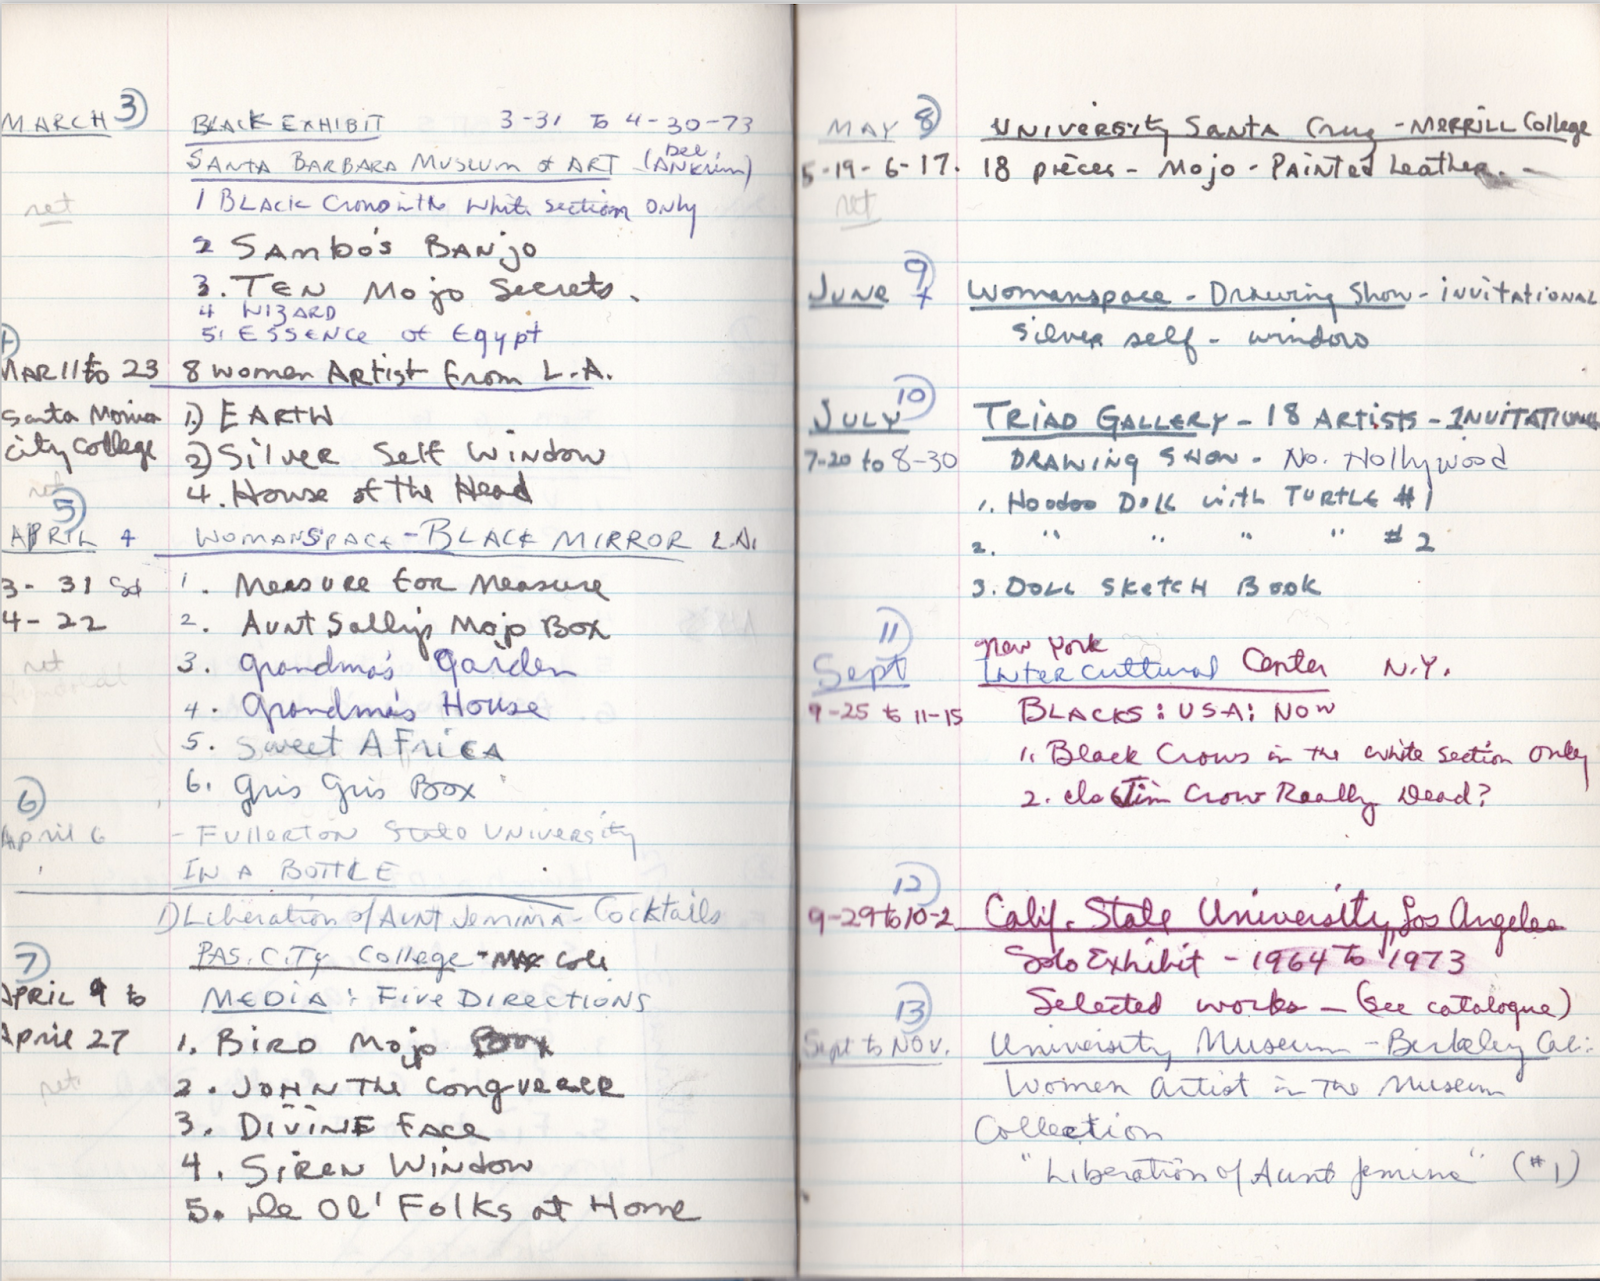 MARCH 3 BLACK EXHIBIT 3-31 to 4-30-73
SANTA BARBARA MUSEUM of ART - (Del. ANKRUM)
ret 1 BLACK Crows in the White section ONLY
2 SAMBO'S BANJO
3. TEN MOJO Secrets.
4 WIZARD
5. ESSENCE of Egypt
MAR 11 to 23 8 women Artist from L.A.
Santa Monica 1.) EARTH
city college 2) Silver Self Window
ret 4. House of The Head
5
APRIL 4 WOMANSPACE - BLACK MIRROR L.A.
3-31 1. Measure for Measure
4-22 2. Aunt Sally's Mojo Box
ret 3. Grandma's Garden
4. Grandma's House
5. Sweet AFRICA
6 6. Gris Gris Box
April 6 - FULLERTON State UNIVERSity
IN A BOTTLE
1) Liberation of AUNT Jemima - Cocktails
7 PAS. CITY College -
APRIL 9 to MEDIA: Five DIRECTIONS
April 27 1. BIRD Mojo Box
ret 2. JOHN The CONQUERER
3. DIVINE Face
4. SIREN WINDOW
5. De Ol' FOLKS at Home
MAY 8 UNIVERSity Santa Cruz - MERRILL College
5-19-6-17. 18 pieces - Mojo - Painted Leather. -
ret
9
June Womanspace - Drawing Show - invitational
Silver self - window
10
JULY TRIAD GALLERY - 18 ARTISTS - INVITATIONAL
7-20 to 8-30 DRAWING SHOW - No. Hollywood
1. Hoodoo Doll with TURTLE #1
2. " " " " #2
3. DOLL SKETCH BOOK
11 New York
Sept Inter cultural Center N.Y.
9-25 to 11-15 BLACKS: USA: NOW
1. Black Crows in the white section only
2. Is Jim Crow Really Dead?
12
9-29 to 10-2 Calif. State University, Los Angeles
Solo Exhibit - 1964 to 1973
13 Selected works - (see catalogue)
Sept to NOV. University Museum - Berkeley Cal:
Women Artist in The Museum
Collection
"Liberation of Aunt Jemima" (#1)